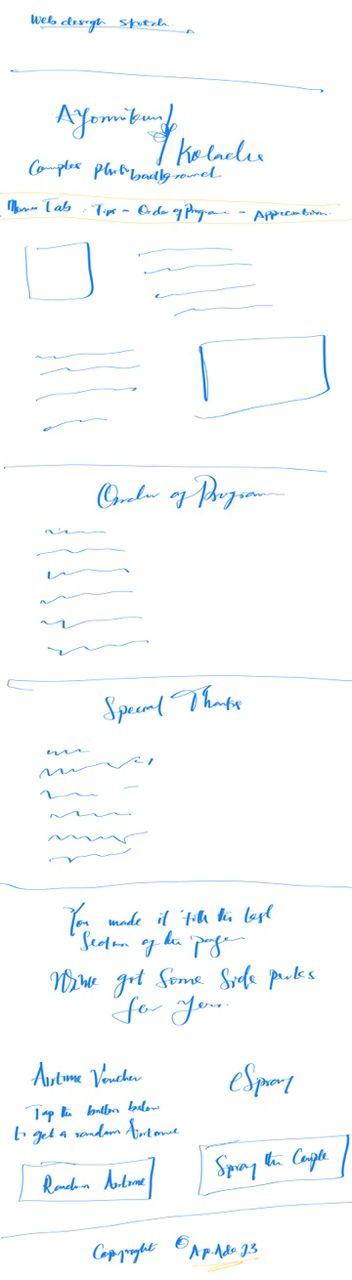 Web design sketch
Ayomikun
Kolade
Couples photo background
Menu Tab - Tips - Order of Program - Appreciation
Order of Program
Special Thanks
You made it till the last
Section of the page
We got some side perks
for you.
Airtime Voucher
Tap the button below
to get a random Airtime
Random Airtime
eSpray
Spray the Couple
Copyright © Ap.Ade 23